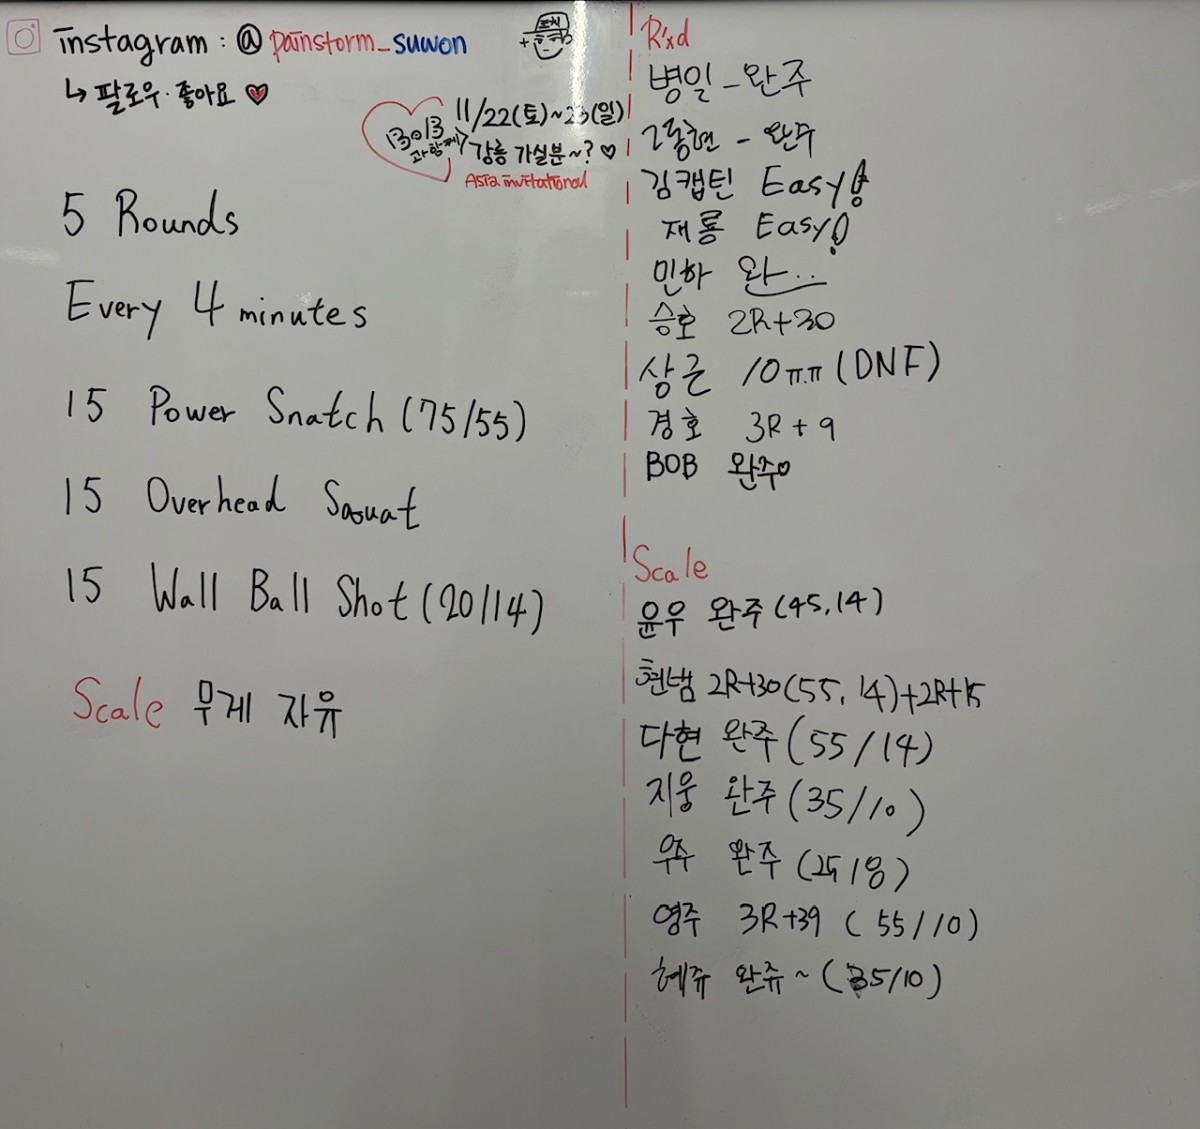 instagram : @ painstorm_suwon
↳ 팔로우·좋아요 ♥
코치
BOB
과 함께
11/22(토)~23(일)
강릉 가실분~? ♡
Asia invitational
5 Rounds
Every 4 minutes
15 Power Snatch (75/55)
15 Overhead Squat
15 Wall Ball Shot (20/14)
Scale 무게 자유
R'xd
병일 - 완주
동현 - 완주
김캡틴 Easy!
재롱 Easy!
민하 완..
승호 2R+30
상근 10ㅠㅠ (DNF)
경호 3R + 9
BOB 완주♡
Scale
윤우 완주 (45, 14)
현냄 2R+30 (55, 14)+2R+15
다현 완주 (55/14)
지웅 완주 (35/10)
우주 완주
영주 3R+39 (55/10)
혜쥬 완쥬~ (35/10)